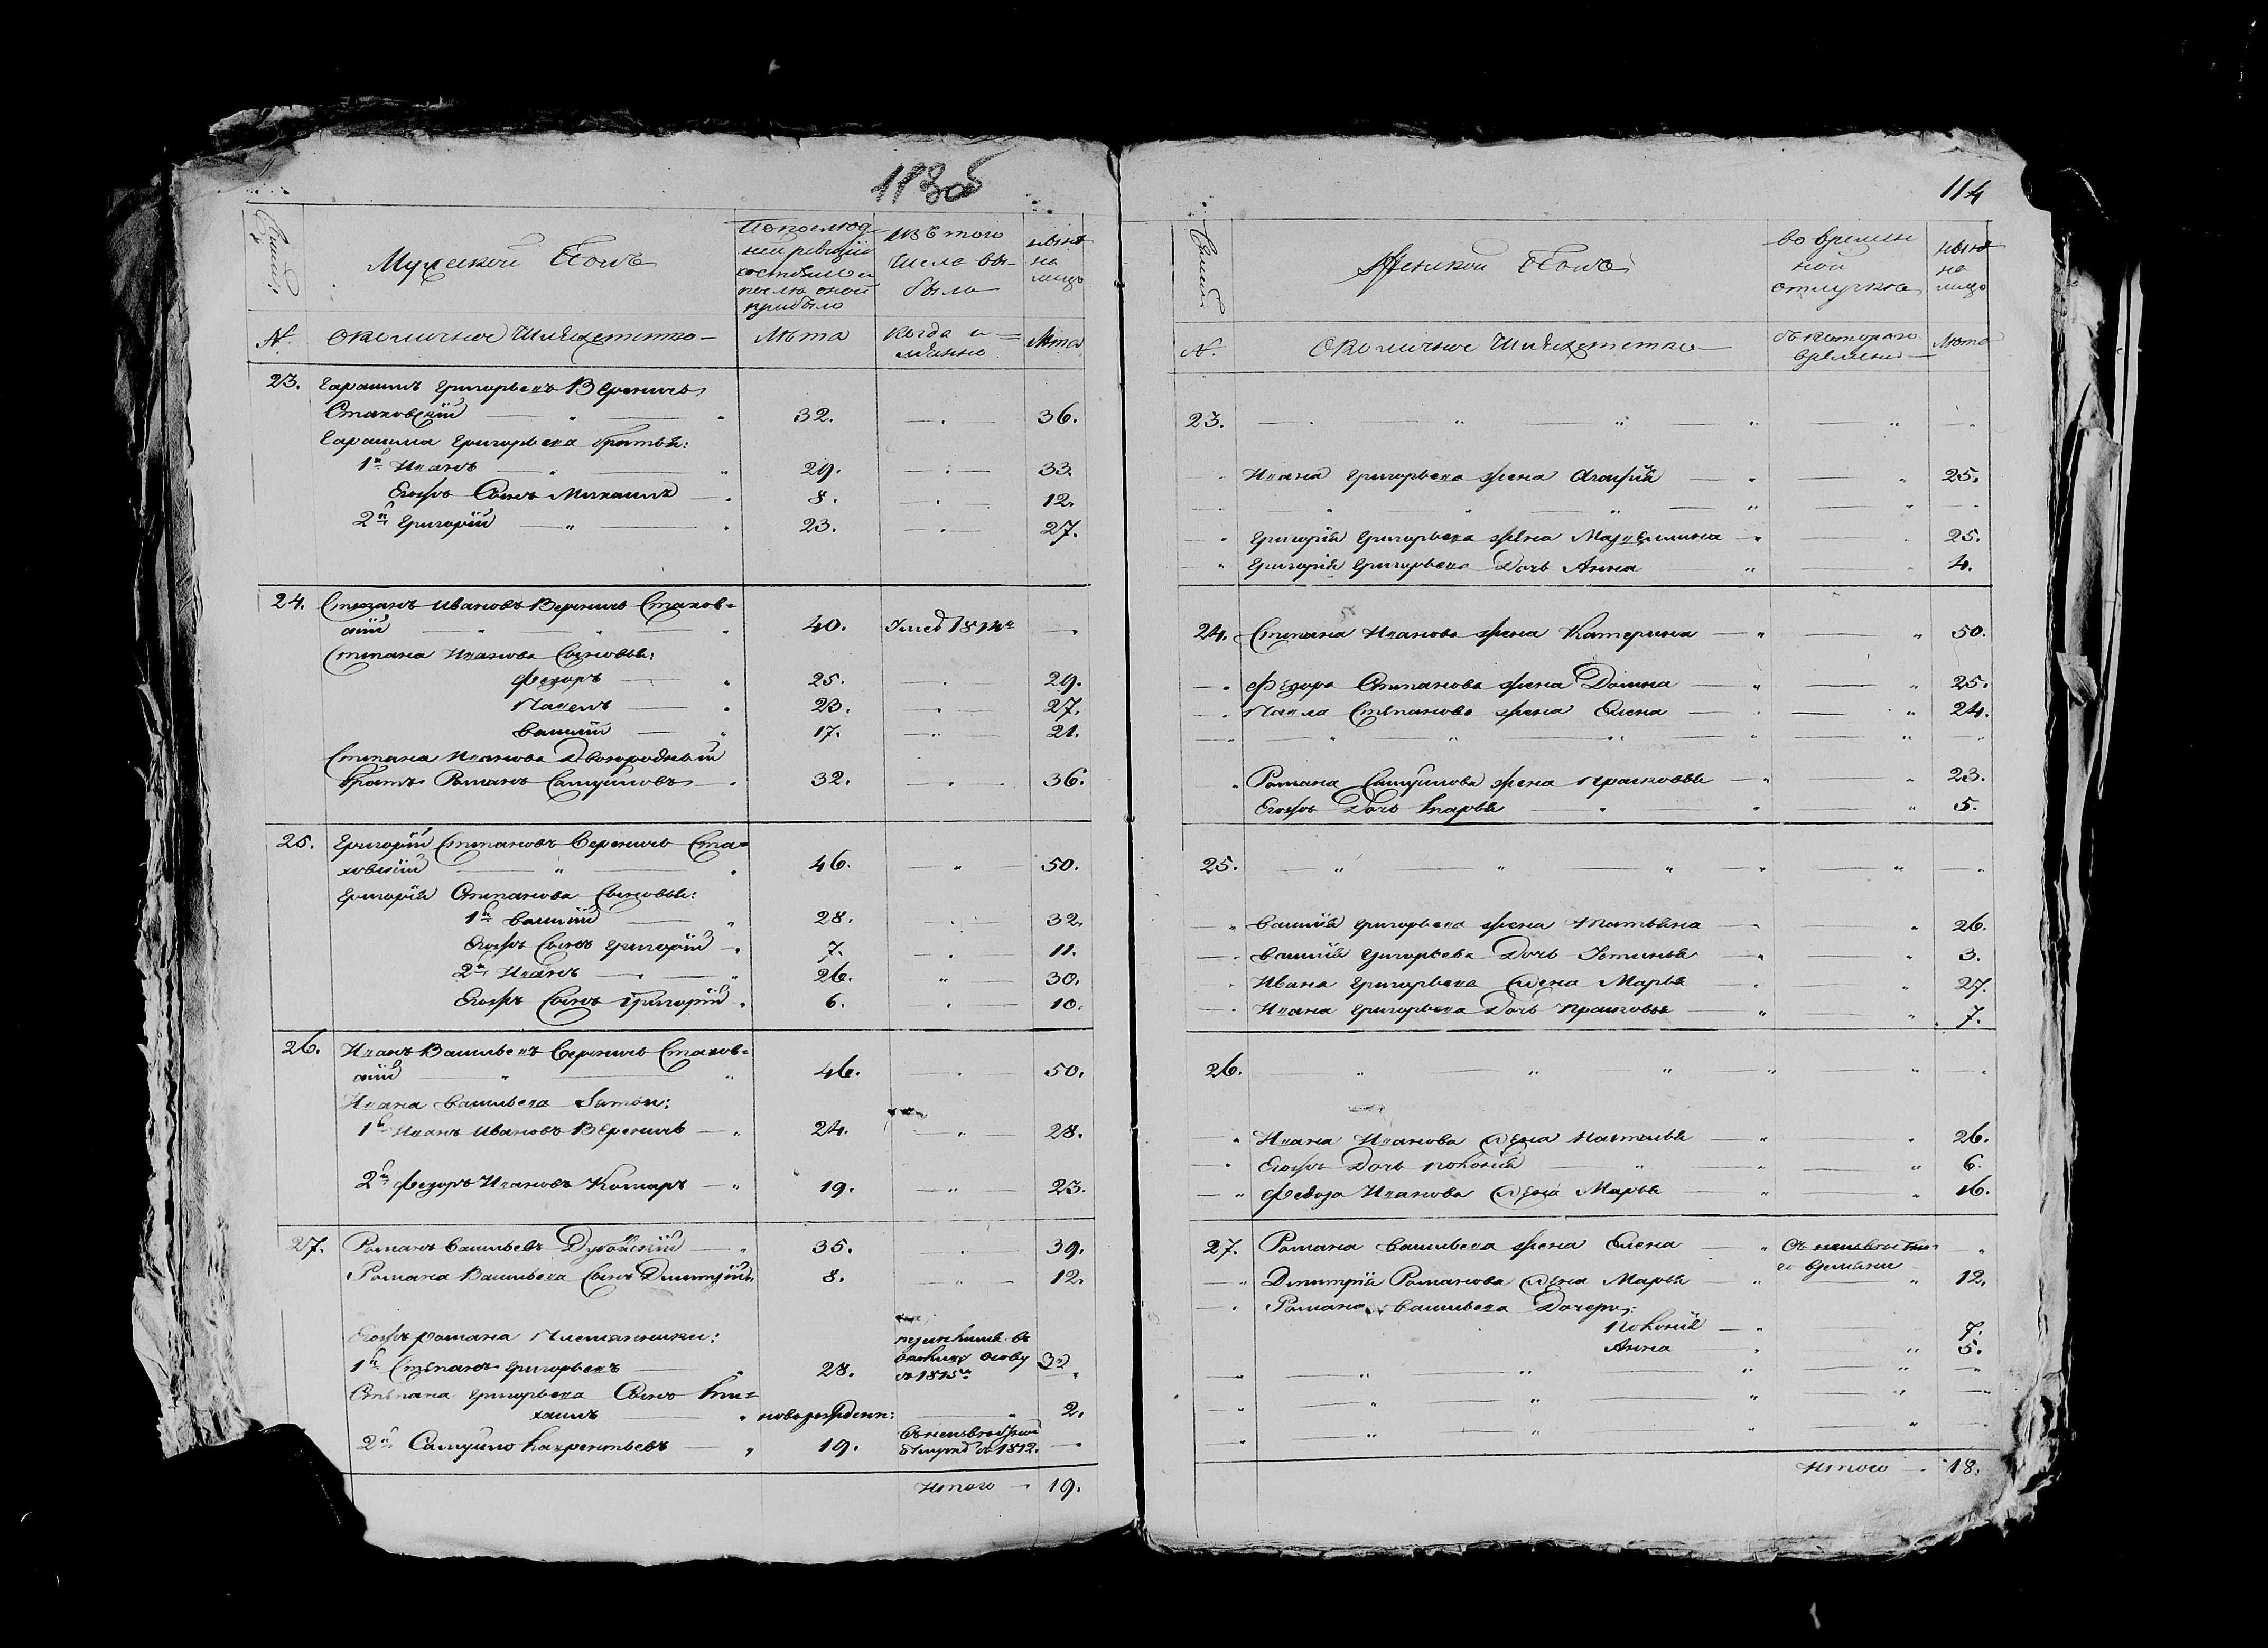 113об
Семьи:
Мужеской Полъ
По послед-
ней ревизіи
состояло и
после оной
прибыло
Изъ того
числа вы-
было
ныне
на
лицо
№.
Околичное Шляхетство
Лета
Когда и-
мянно
Лета
23. Гарасимъ Григорьевъ Вереничъ
Стаховскій 32. 36.
Гарасима Григорьева братья:
1й Иванъ 29. 33.
Егожъ Сынъ Михаилъ 8. 12.
2й Григорій 23. 27.
24. Степанъ Ивановъ Вереничъ Стахов-
скій 40. Умеръ 1814го
Степана Иванова Сыновья:
Федоръ 25. 29.
Павелъ 23. 27.
Василій 17. 21.
Степана Иванова Двоюродный
братъ Романъ Самуиловъ 32. 36.
25. Григорій Степановъ Вереничъ Ста-
ховскій 46. 50.
Григорія Степанова Сыновья:
1й Василій 28. 32.
Егожъ Сынъ Григорій 7. 11.
2й Иванъ 26. 30.
Егожъ Сынъ Григорій 6. 10.
26. Иванъ Васильевъ Вереничъ Стахов-
скій 46. 50.
Ивана Васильева Зятьи:
1й Иванъ Ивановъ Вереничъ 24. 28.
2й Федоръ Ивановъ Комаръ 19. 23.
27. Романъ Васильевъ Дубойскій 35. 39.
Романа Васильева Сынъ Дмитрій 8. 12.
Егожъ Романа Племянники:
1й Степанъ Григорьевъ 28. в 1815м 32
Степана Григорьева Сынъ Ми-
хаилъ новорожден: 2.
2й Самуило Лаврентьевъ 19. в 1812.
Итого 19.
114
Семьи:
Женской Полъ
во времен
ной
отлучке
ныне
на
лицо
№.
Околичное Шляхетство
съ котораго
времени
Лета
23.
Ивана Григорьева жена Агафія 25.
Григорія Григорьева жена 25.
Григорія Григорьева Дочь Анна 4.
24. Степана Иванова жена Катерина 50.
Федора Степанова жена Домна 25.
Павла Степанова жена Елена 24.
Романа Самуилова жена Прасковья 23.
Егожъ Дочь Марья 5.
25.
Василія Григорьева жена Татьяна 26.
Василія Григорьева Дочь Устинья 3.
Ивана Григорьева Жена Марья 27.
Ивана Григорьева Дочь Прасковья 7.
26.
Ивана Иванова Жена Настасья 26.
Егожъ Дочь 6.
Федора Иванова Жена Марья 16.
27. Романа Васильева жена Елена
го времени
Дмитрія Романова Жена Марья 12.
Романа Васильева Дочери:
7.
Анна 5.
Итого 18.